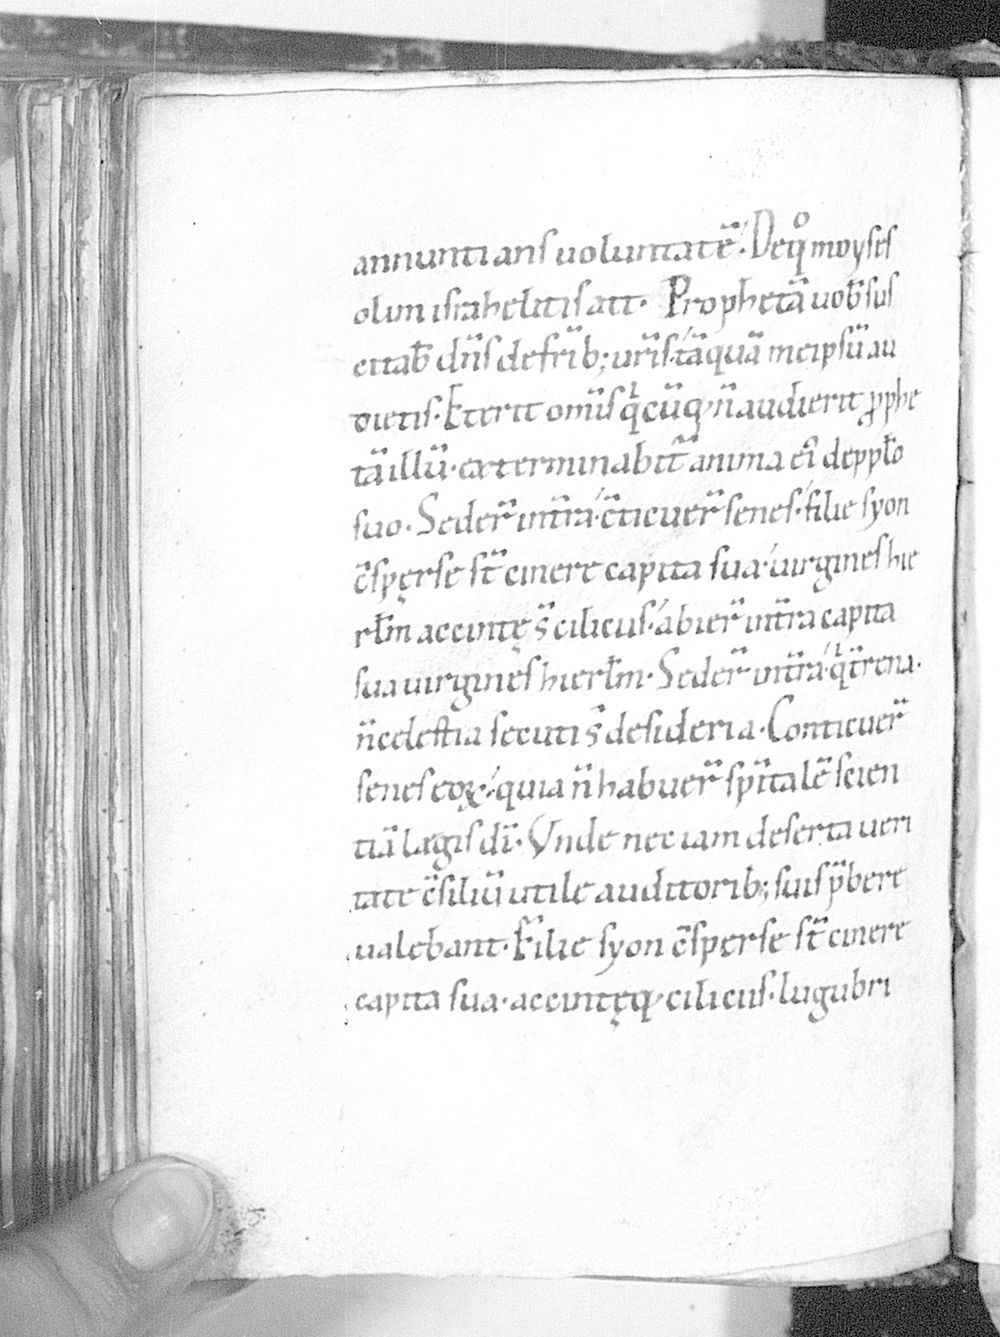 annuntians uoluntatē. De q̊ moyses
olim israhelitis ait. Prophetā uob̄ sus
citab̄ dn̄s de frīb; ur̄is tāquā meipsū au
dietis. Et erit om̄is q̇cūq; n̄ audierit p̱phe
tā illū. exterminabit᷑ anima ei᷒ de pplo̅
suo. Seder̄ in tr̄a c̄ticuer̄ senes. filie syon
c̄spęrse st̄ cinere capita sua. uirgines hie
rl̄m accintę s̄ ciliciis. abier̄ in tr̄a capita
sua uirgines hierl̄m. Seder̄ in tr̄a. q̇ tr̄ena.
n̄ celestia secuti s̄ desideria. Conticuer̄
senes eoꝝ. quia n̄ habuer̄ spīītalē scien
tiā legis dī. Vnde nec iam deserta ueri
tate c̄siliū utile auditorib; suis p̄bere
ualebant. Filie syon c̄sperse st̄ cinere
capita sua. accintęq; ciliciis. lugubri